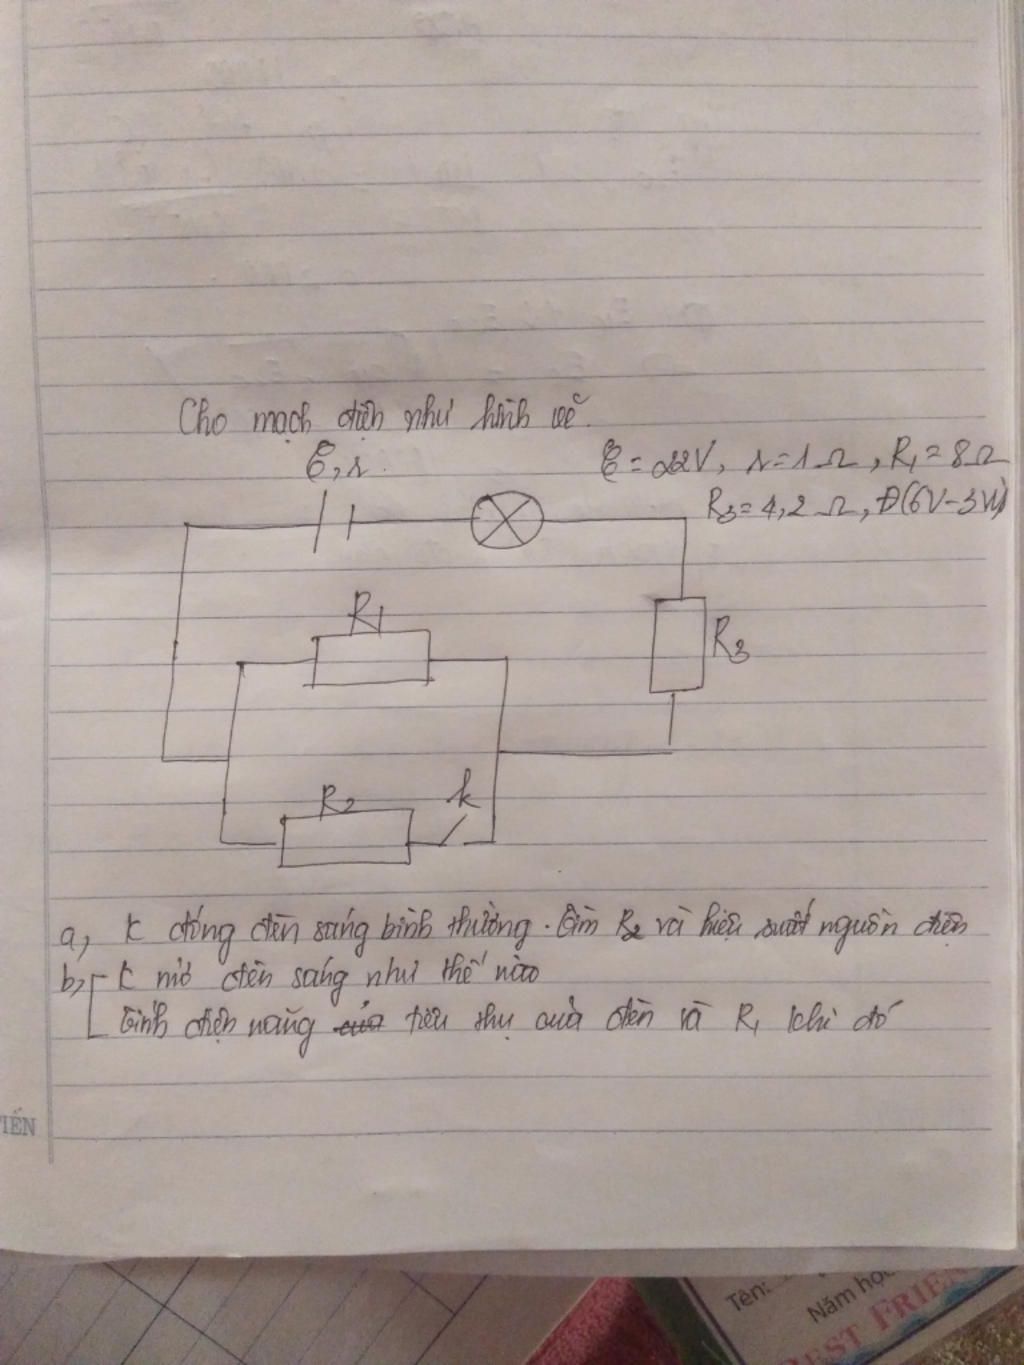 Cho mạch điện như hình vẽ.
E, r.
E = 22V, r = 1Ω, R1 = 8Ω
R3 = 4,2 Ω, Đ(6V-3W)
R1
R3
R2
k
a, K đóng đèn sáng bình thường. Tìm R2 và hiệu suất nguồn điện
b, K mở đèn sáng như thế nào
Tính điện năng tiêu thụ của đèn và R1 khi đó
TIẾN
Tên:
Năm học
BEST FRIEN